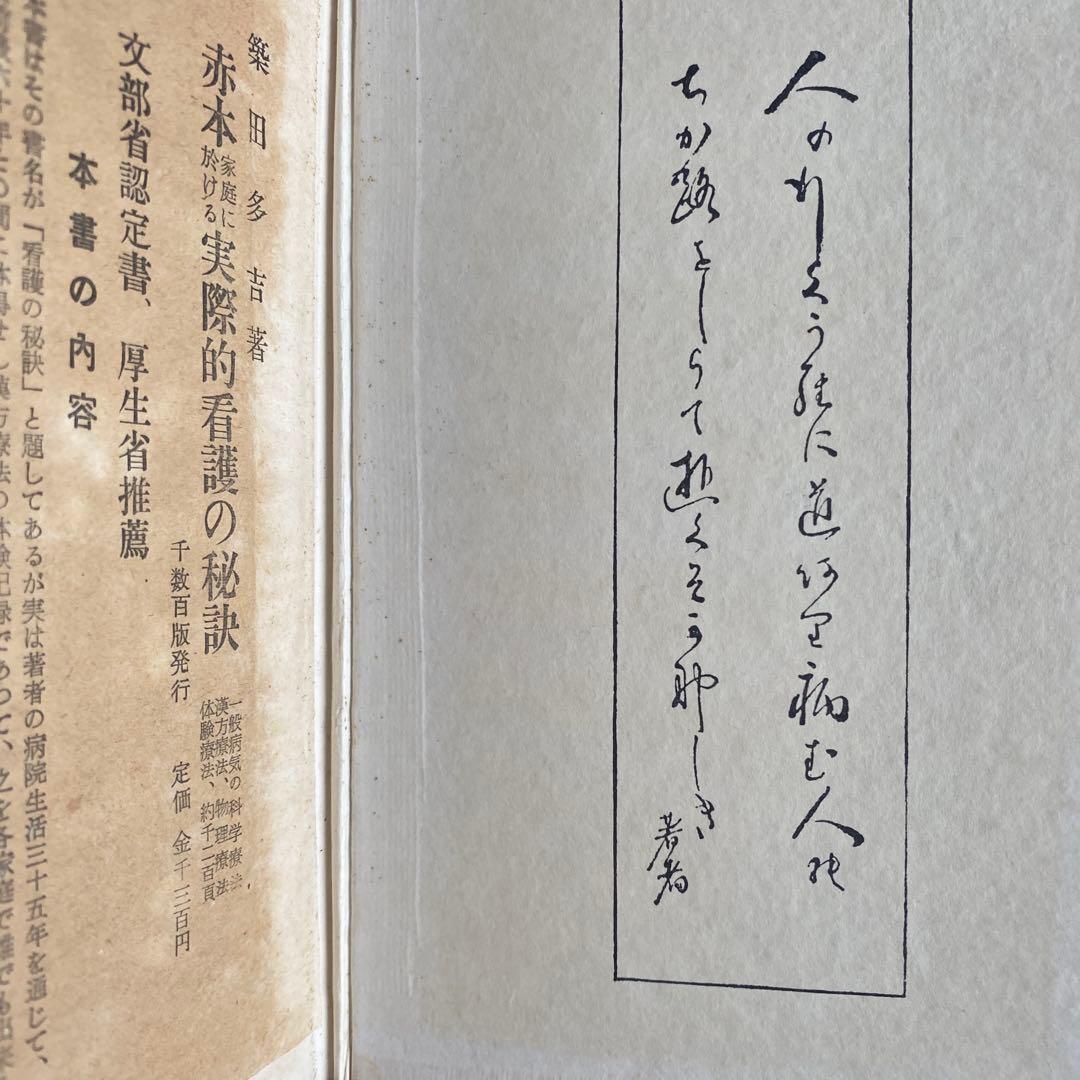 人の行くうらに道あり病む人の
ちか路をしらて逝くそかなしき
著者
築田多吉著
赤本家庭に於ける実際的看護の秘訣
一般病気の科学療法
漢方療法、物理療法
体験療法、約千二百頁
千数百版発行 定価 金千三百円
文部省認定書、厚生省推薦
本書の内容
本書はその書名が「看護の秘訣」と題してあるが実は著者の病院生活三十五年を通じて、
漢方療法の体験記録であつて、之を各家庭で誰でも